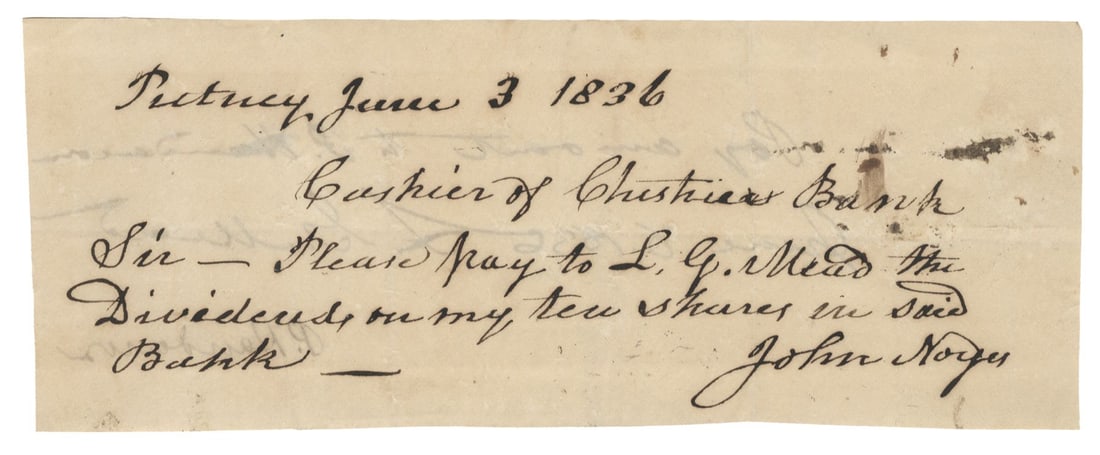 Putney June 3 1836
Cashier of Cheshire Bank
Sir — Please pay to L. G. Mead the
Dividends on my ten shares in said
Bank —
John Noyes